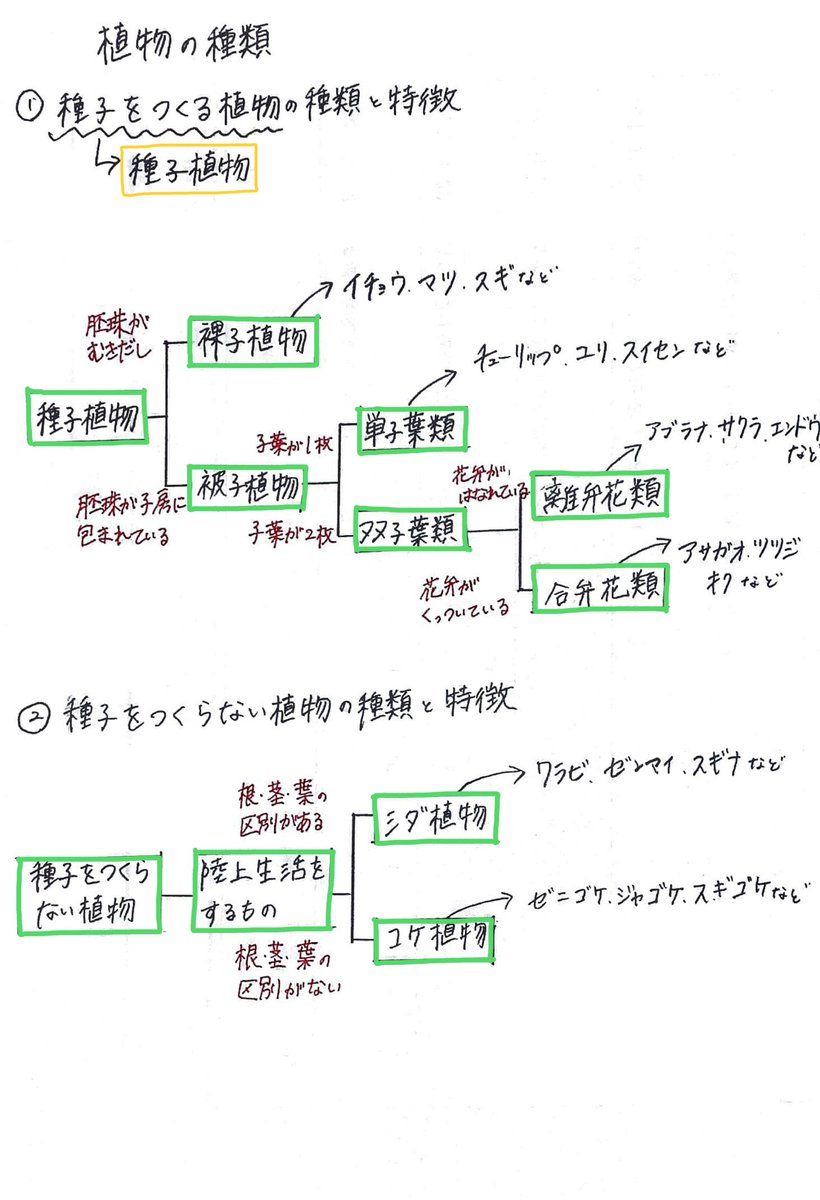 植物の種類
① 種子をつくる植物の種類と特徴
種子植物
イチョウ、マツ、スギなど
胚珠が
むきだし
裸子植物
チューリップ、ユリ、スイセンなど
種子植物
子葉が1枚
単子葉類
アブラナ、サクラ、エンドウ
など
胚珠が子房に
包まれている
被子植物
子葉が2枚
双子葉類
花弁が
はなれている
離弁花類
花弁が
くっついている
合弁花類
アサガオ、ツツジ
キクなど
② 種子をつくらない植物の種類と特徴
ワラビ、ゼンマイ、スギナなど
根・茎・葉の
区別がある
シダ植物
種子をつくら
ない植物
陸上生活を
するもの
ゼニゴケ、ジャゴケ、スギゴケなど
コケ植物
根・茎・葉の
区別がない